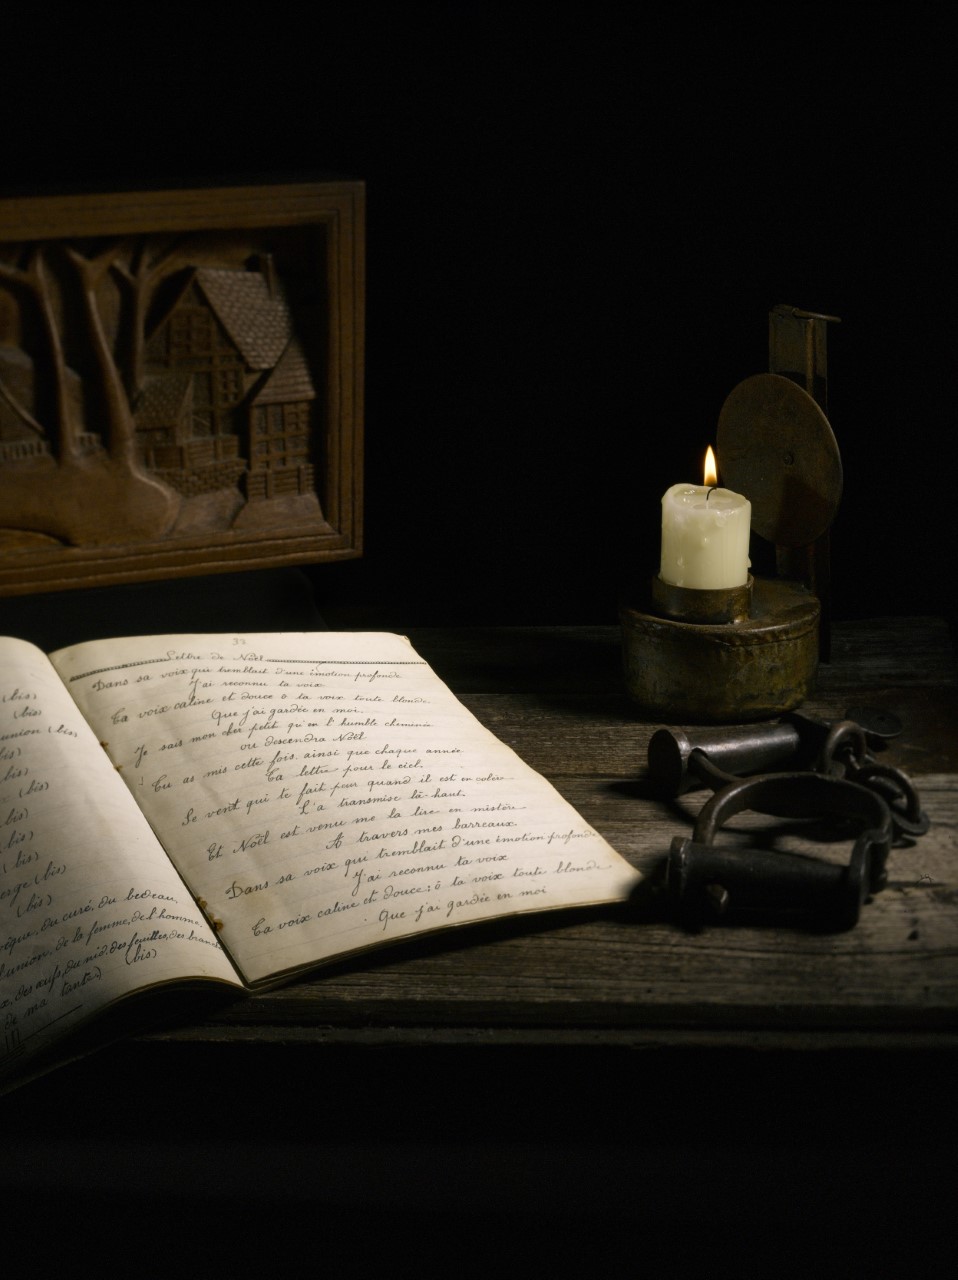 (bis)
(bis)
union (bis)
bis)
bis)
(bis)
bis)
bis)
(bis)
erge (bis)
(bis)
du curé, du bedeau,
l'union, de la femme, de l'homme,
des œufs, du nid, des feuilles, des
de ma tante) (bis)
32
Lettre de Noël
Dans sa voix qui tremblait d'une émotion profonde
J'ai reconnu ta voix
Ta voix caline et douce ô ta voix toute blonde
Que j'ai gardée en moi.
Je sais mon cher petit qu'en l'humble cheminée
ou descendra Noël
Tu as mis cette fois, ainsi que chaque année
Ta lettre pour le ciel.
Le vent qui te fait peur quand il est en colère
L'a transmise là-haut.
Et Noël est venu me la lire en mistère
A travers mes barreaux
Dans sa voix qui tremblait d'une émotion profonde
J'ai reconnu ta voix
Ta voix caline et douce: ô ta voix toute blonde
Que j'ai gardée en moi